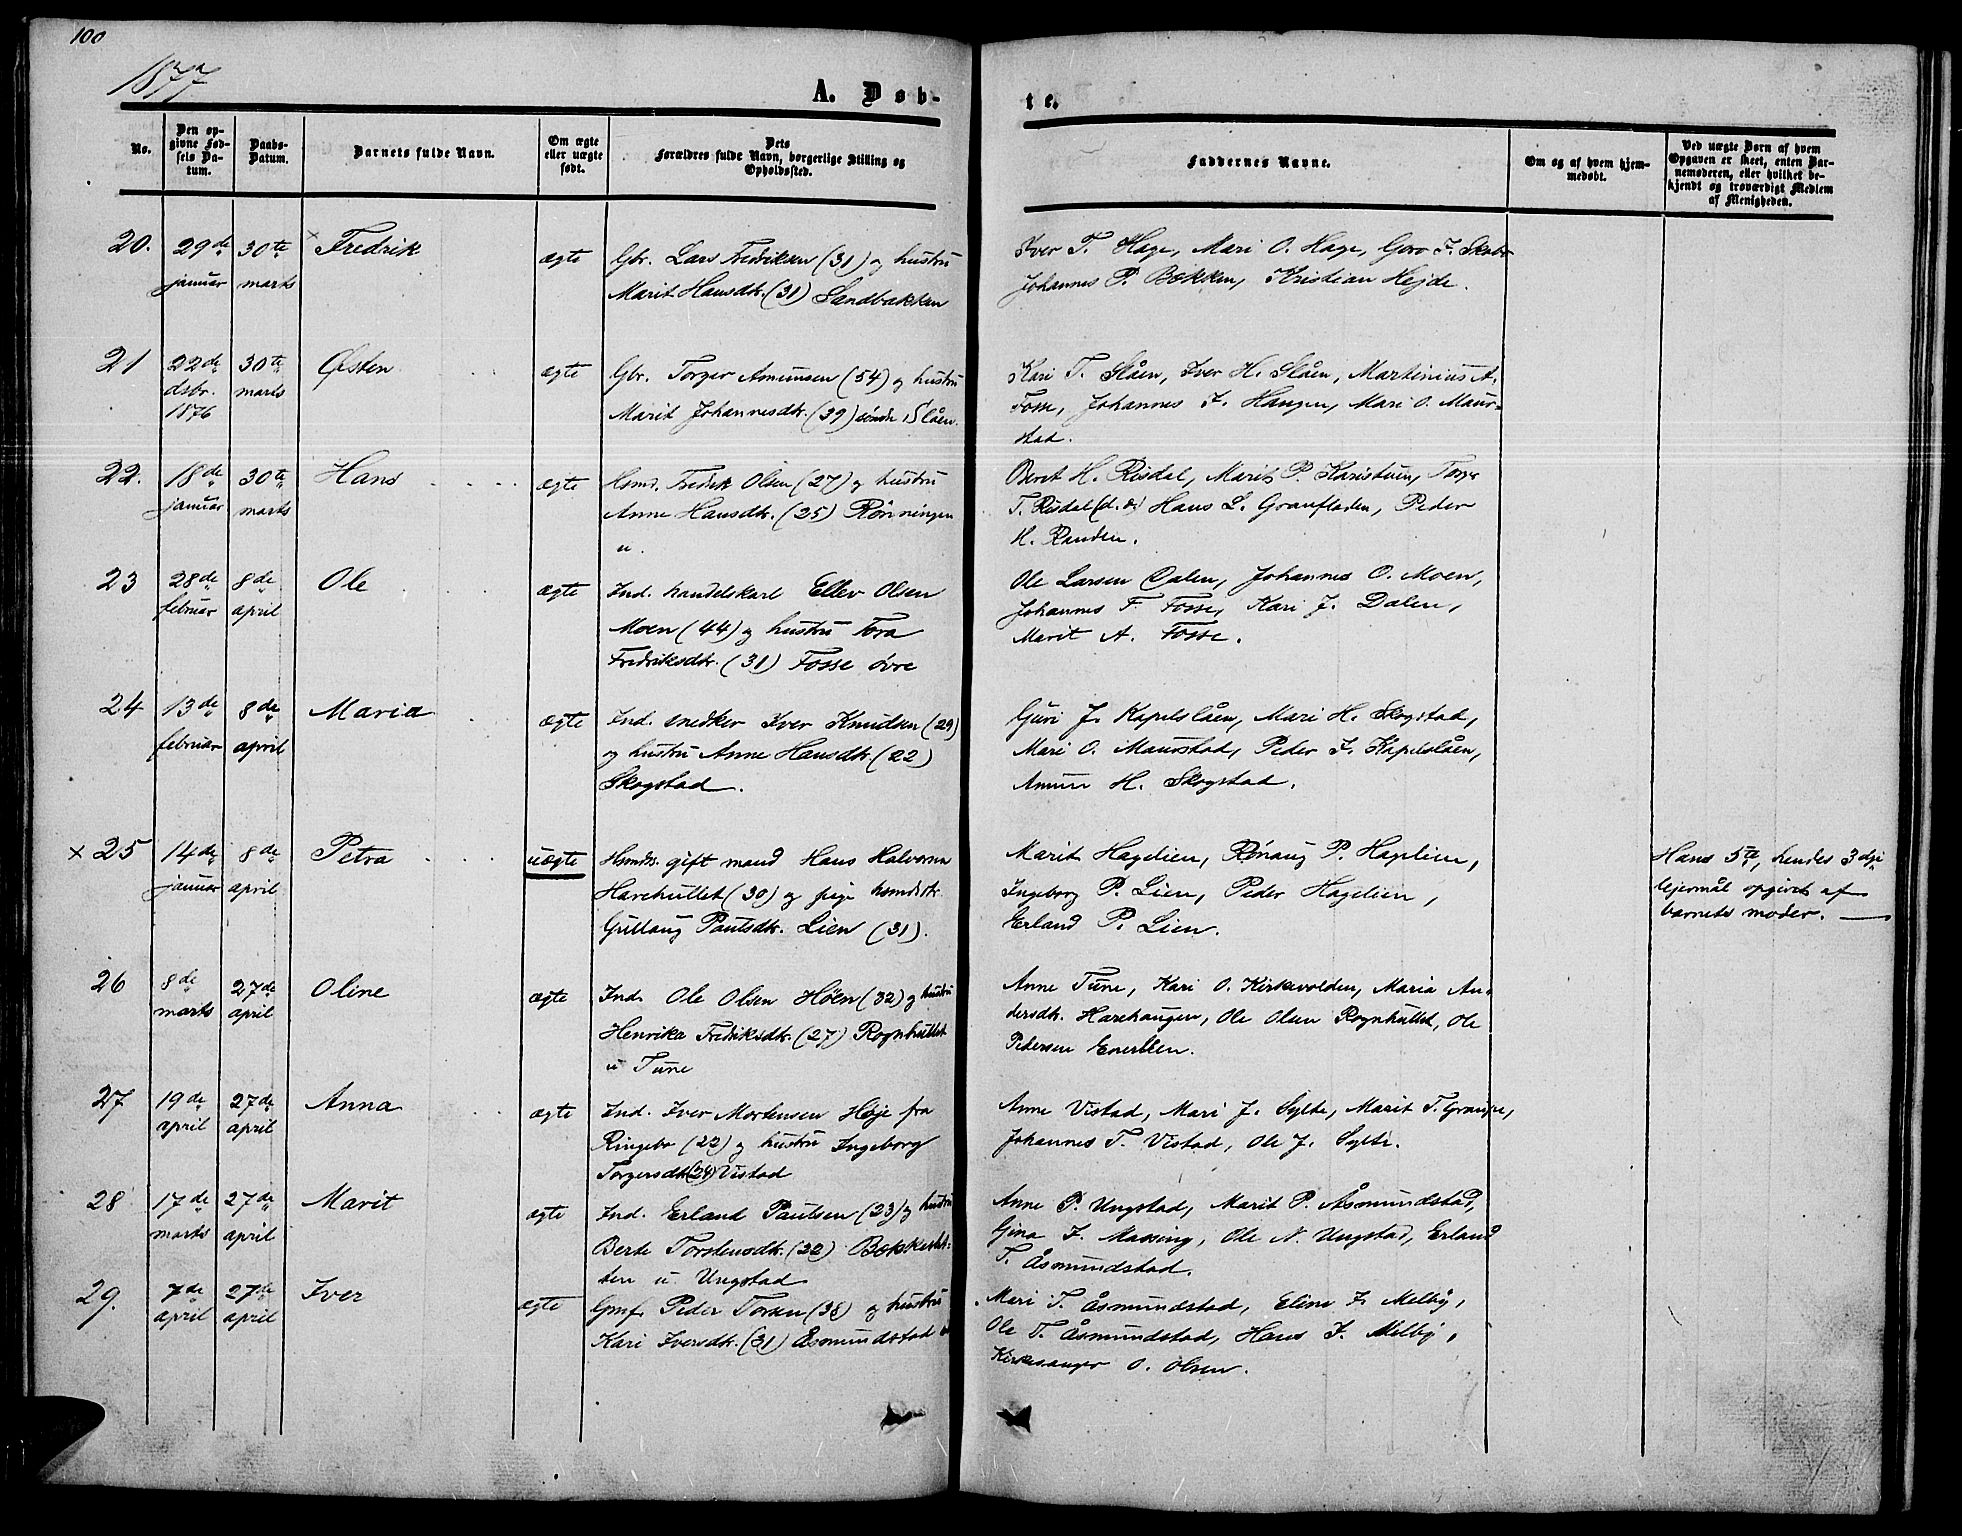 100
1877
A. Døb-
te.
No.
Den op-
givne Fød-
sels Da-
tum.
Daabs-
Datum.
Barnets fulde Navn.
Om ægte
eller uægte
født.
Dets
Forældres fulde Navn, borgerlige Stilling og
Opholdssted.
Faddernes Navne.
Om og af hvem hjem-
medøbt.
Ved uægte Børn af hvem
Opgaven er skeet, enten Bar-
nemoderen, eller hvilket be-
kjendt og troværdigt Medlem
af Menigheden.
20.
29de
januar
30te
marts
× Fredrik
ægte
Gbr. Lars Fredriksen (31) og hustru
Marit Hansdtr. (31) Sandbakken
Iver T. Hage, Mari O. Hage, Goro I.
Johannes P. Bækken, Kristian Hejde.
21
22de
dsbr.
1876
30te
marts
Østen
ægte
Gbr. Torger Amunsen (54) og hustru
Marit Johannesdtr. (39) søndr. Slåen.
Kari T. Slåen, Iver H. Slåen, Martinius A.
Fosse, Johannes I. Haugen, Mari O. Maur-
stad.
22.
18de
januar
30te
marts
Hans
ægte
Hsmd. Fredrik Olsen (27) og hustru
Anne Hansdtr. (25) Rønningen
u.
Beret H. Risdal, Marit P. Karistuen, Torger
T. Risdal (d. æ) Hans L. Granfladen, Peder
H. Randen.
23
28de
februar
8de
april
Ole
ægte
Ind. handelskarl Ellev Olsen
Moen (44) og hustru Tora
Fredriksdtr. (31) Fosse øvre
Ole Larsen Dalen, Johannes O. Moen,
Johannes F. Fosse, Kari J. Dalen,
Marit A. Fosse.
24
13de
februar
8de
april
Maria
ægte
Ind. snedker Iver Knudsen (29)
og hustru Anne Hansdtr. (22)
Skogstad.
Guri J. Kapelslåen, Mari H. Skogstad,
Mari O. Maurstad, Peder I. Kapelslåen,
Amun H. Skogstad.
× 25
14de
januar
8de
april
Petra
uægte
Hsmds. gift mand Hans Halvorsen
Harehullet (30) og pige hsmdsdtr.
Gullaug Paulsdtr. Lien (31).
Marit Hagelien, Rønaug P. Hagelien,
Ingeborg P. Lien, Peder Hagelien,
Erland P. Lien.
Hans 5te, hendes 3dje
lejermål opgivet af
barnets moder.
26
8de
marts
27de
april
Oline
ægte
Ind. Ole Olsen Høen (32) og hustru
Henrika Fredriksdtr. (27) Rognhullet
u Tune
Anne Tune, Kari O. Kirkevolden, Maria An-
dersdtr. Harehaugen, Ole Olsen Rognhullet, Ole
Pedersen
27
19de
april
27de
april
Anna
ægte
Ind. Iver Mortensen Høje fra
Ringebo (22) og hustru Ingeborg
Torgersdtr (24) Vistad
Anne Vistad, Mari J. Sylte, Marit T. Graupe,
Johannes T. Vistad, Ole J. Sylte.
28
17de
marts
27de
april
Marit
ægte
Ind. Erland Paulsen (23) og hustru
Berte Torstensdtr. (22)
u Ungstad
Anne P. Ungstad, Marit P. Åsmundstad,
Gina I. Massing, Ole N. Ungstad, Erland
T. Åsmundstad.
29.
7de
april
27de
april
Iver
ægte
Gmf. Peder Torsen (38) og hustru
Kari Iversdtr. (31) Åsmundstad
Mari T. Åsmundstad, Eline I. Melby,
Ole T. Åsmundstad, Hans I. Melby,
Kirkesanger O. Olsen.